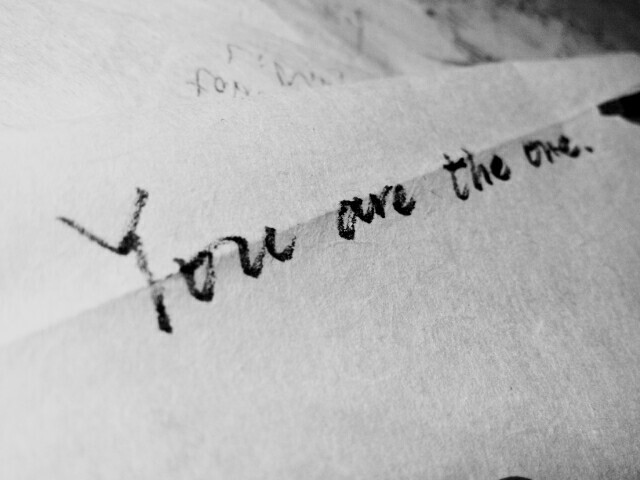 You are the one.